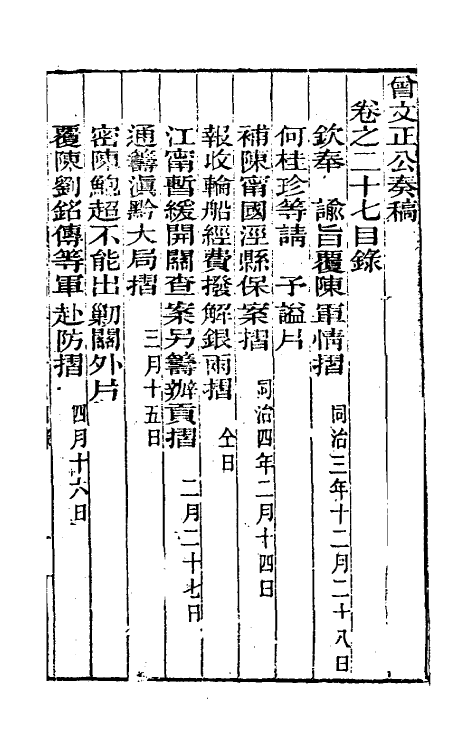 曾文正公奏稿
卷之二十七目錄
欽奉　諭旨覆陳軍情摺　同治三年十二月二十八日
何桂珍等請　予謚片
補陳甯國涇縣保案摺　同治四年二月十四日
報收輪船經費撥解銀兩摺　仝日
江甯暫緩開關查案另籌辦貢摺　二月二十七日
通籌滇黔大局摺　三月十五日
密陳鮑超不能出勦關外片
覆陳劉銘傳等軍赴防摺　四月十六日